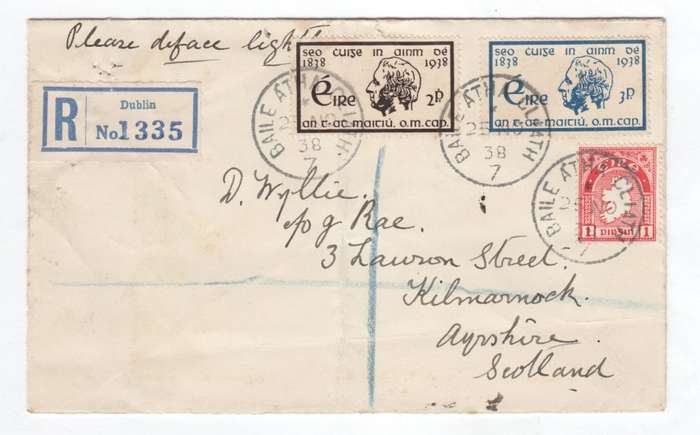 Please deface lightly
R Dublin
No 1335
seo cuize in ainm dé
1838 1938
éire 2P
an t-at. maitiú, o.m. cap.
seo cuize in ainm dé
1838 1938
éire 3P
an t-at. maitiú, o.m. cap.
BAILE ÁTHA CLIATH
25 NO
38
7
BAILE ÁTHA CLIATH
25 NO
38
7
BAILE ÁTHA CLIATH
25 NO
7
1 pinȝin 1
D. Wyllie.
c/o G Rae.
3 Lawson Street.
Kilmarnock.
Ayrshire.
Scotland